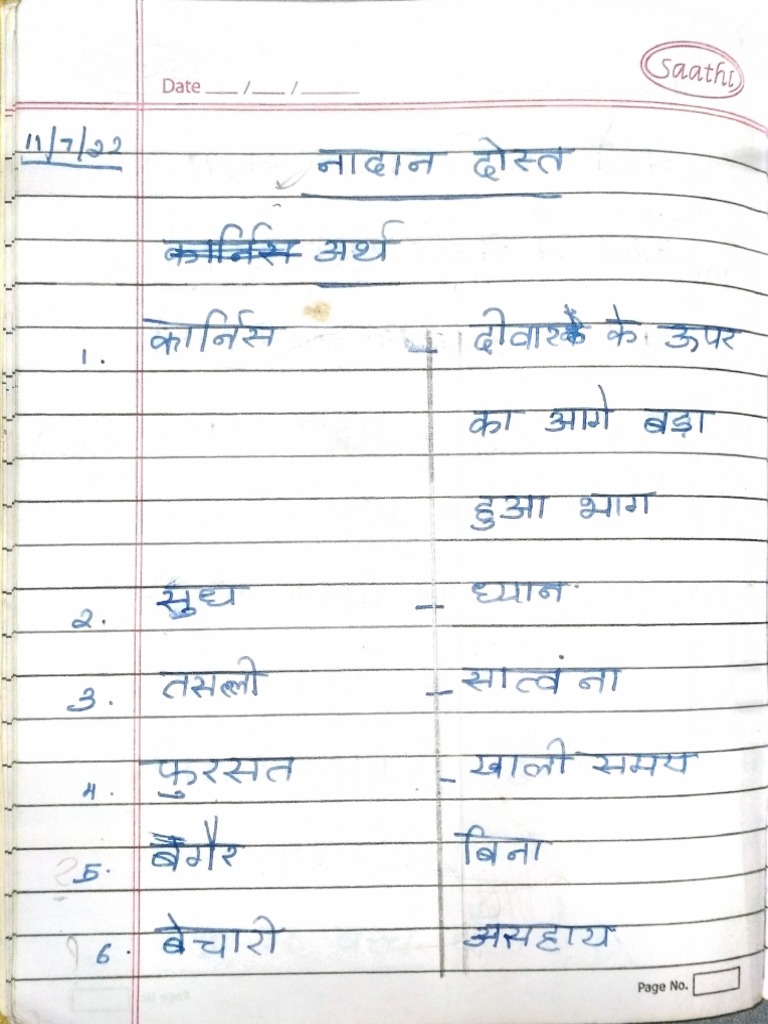 Saathi
Date __/__/____
11/7/22
नादान दोस्त
कार्निस अर्थ
1. कार्निस - दीवार के के ऊपर
का आगे बड़ा
हुआ भाग
2. सुध - ध्यान
3. तसल्ली - सात्वंना
4. फुरसत - खाली समय
5. बगैर बिना
6. बेचारी असहाय
Page No.